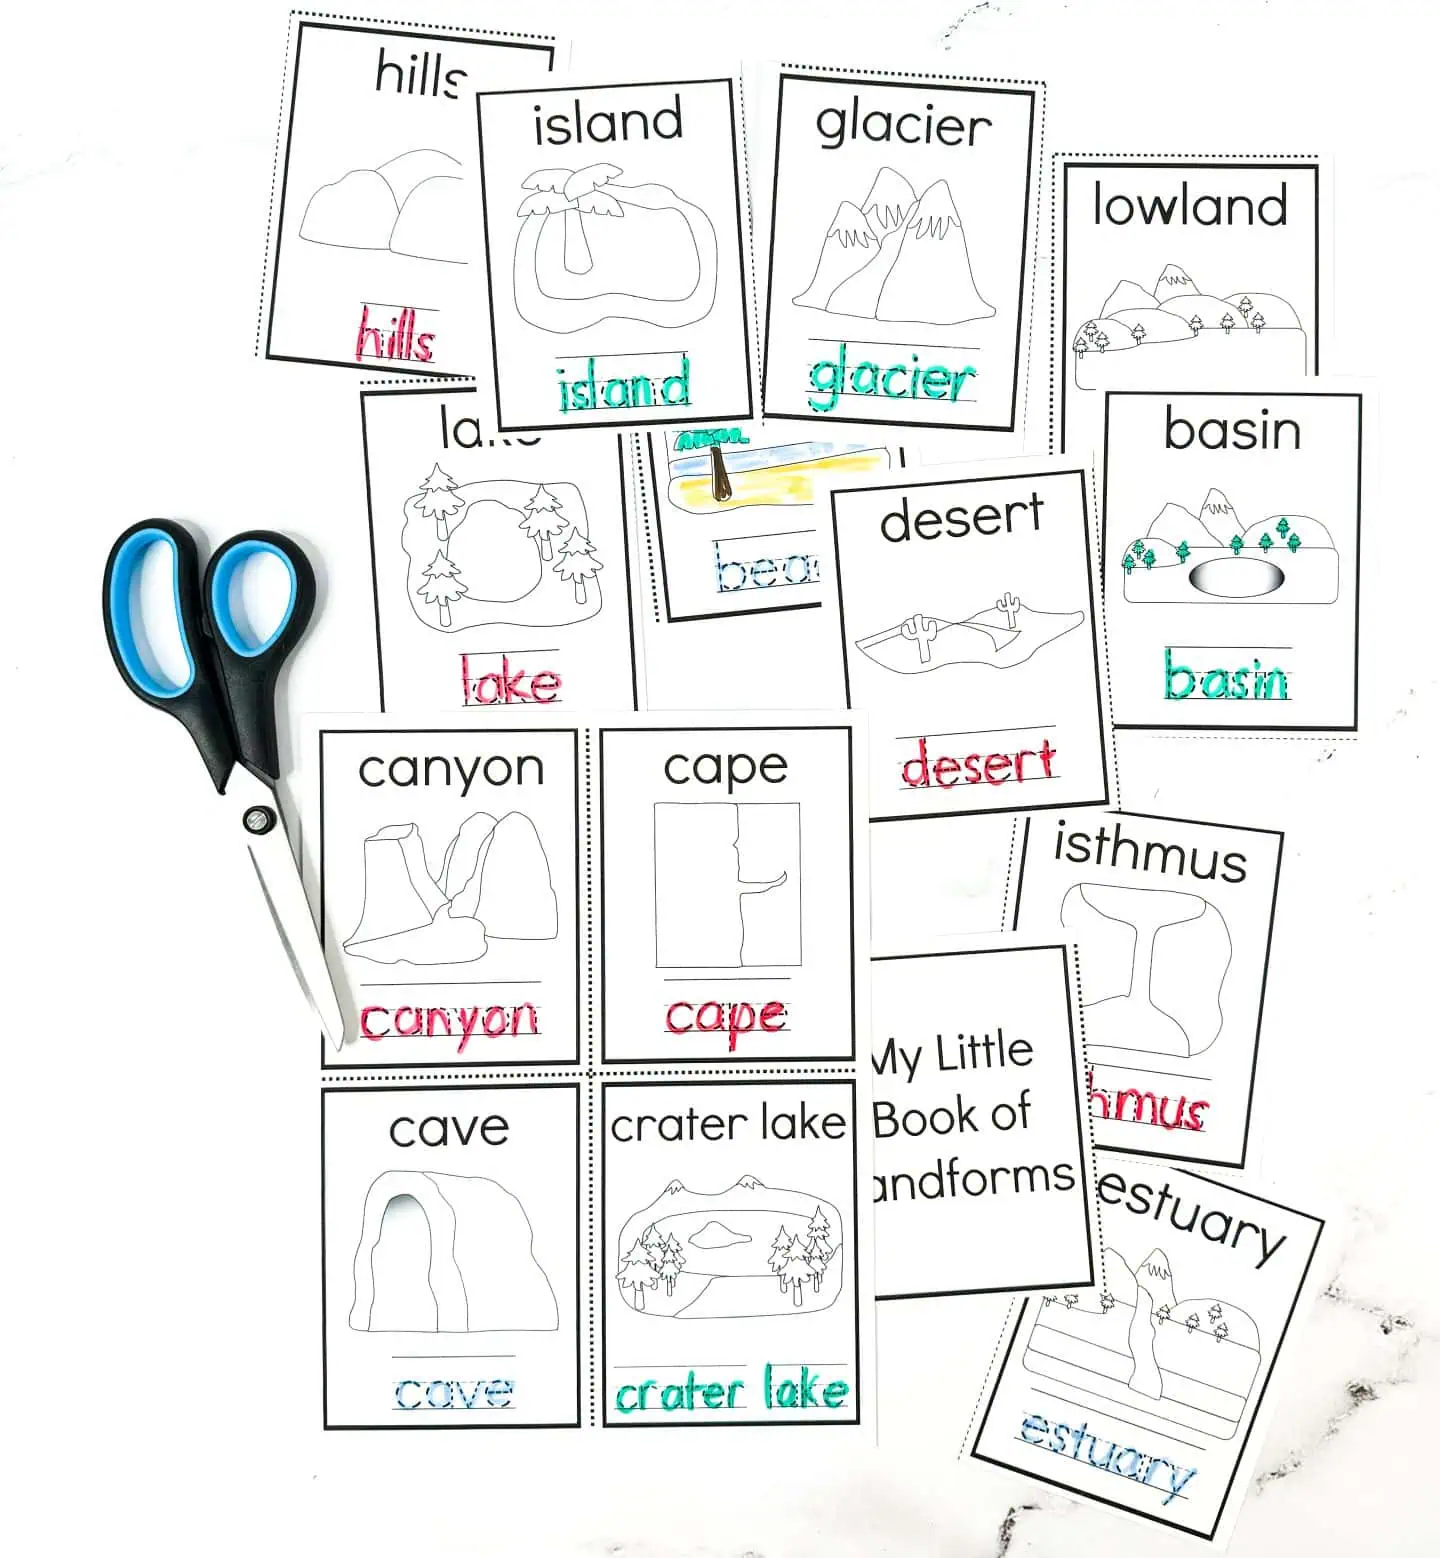 hills
hills
island
island
glacier
glacier
lowland
lake
basin
basin
desert
desert
canyon
canyon
cape
cape
isthmus
hmus
My Little
Book of
andforms
cave
cave
crater lake
crater lake
estuary
estuary